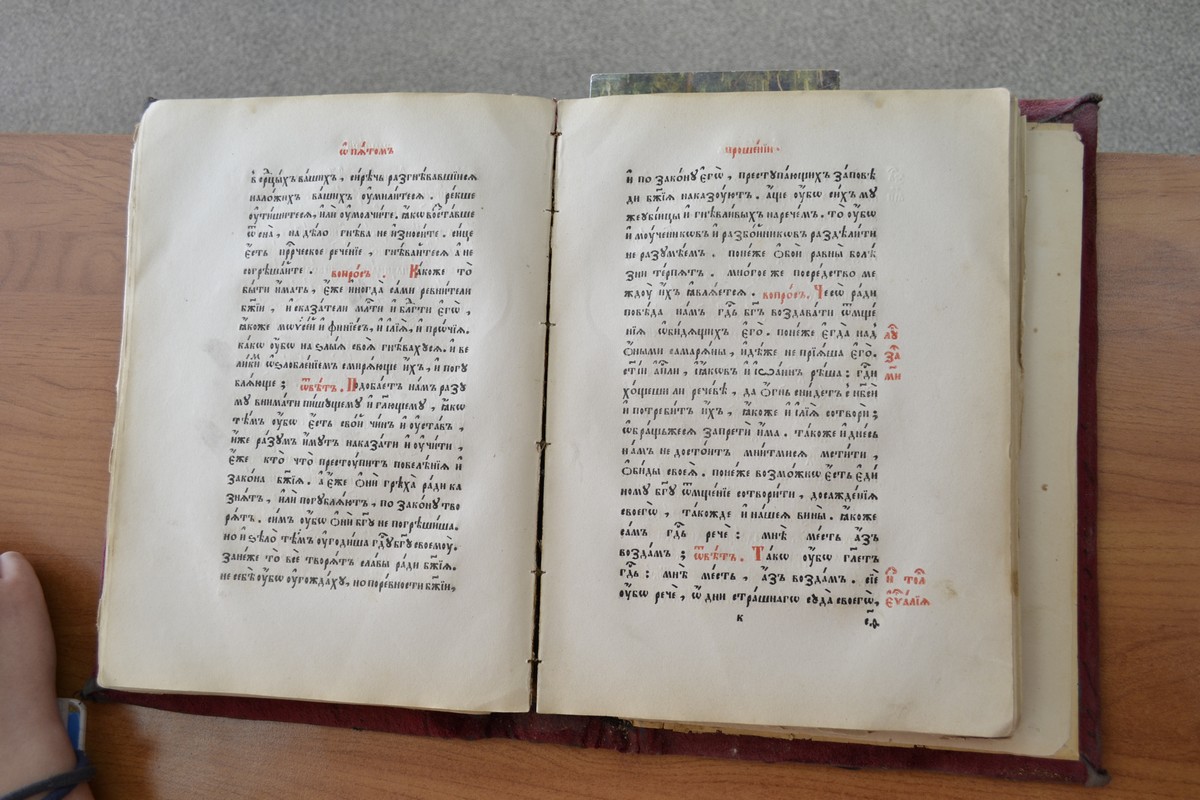 ѡ҆ пѧ́томъ
в срⷣцы́хъ ва́шихъ , си́рѣчь разгнѣ́вавшїисѧ
на ло́жихъ ва́шихъ ᲂу҆мили́тесѧ . ре́кше
ᲂу҆тиши́тесѧ , и҆лѝ ᲂу҆молчи́те . ꙗ҆́кѡ воста́вше
ѿ сна̀ , на дѣ́ло гнѣ́ва не и҆зноси́те . си́це
є҆́сть прⷪ҇ро́ческое рече́нїе , гнѣ́вайтесѧ а҆ не
согрѣша́йте . вопро́съ . Ка́коже то̀
бы́ти и҆́мать , є҆́же и҆ногда̀ са́ми ревни́тели
бж҃їи , и҆ сказа́тели млⷭ҇ти и҆ блⷢ҇ти є҆гѡ̀ ,
ꙗ҆́коже мѡѷсе́й и҆ финїе́съ , и҆ и҆лїа̀ , и҆ про́чїѧ .
ка́кѡ ᲂу҆́бѡ на ѕлы́ѧ своѧ̀ гнѣ́вахусѧ . и҆ ве
ли́кимъ ѡ҆ѕлобле́нїемъ смирѧ́юще и҆́хъ , и҆ погу
блѧ́юще ; ѿвѣ́тъ . Подоба́етъ на́мъ разу
му внима́ти пи́шущему и҆ гл҃ющему , ꙗ҆́кѡ
тѣ́мъ ᲂу҆́бѡ є҆́сть сво́й чи́нъ и҆ ᲂу҆ста́въ ,
и҆́же ра́зумъ и҆́мутъ наказа́ти и҆ ᲂу҆чи́ти ,
є҆́же кто̀ что̀ престоу́питъ повелѣ́нїѧ и҆
зако́на бж҃їѧ . а҆ є҆́же ѻ҆нѝ грѣха̀ ра́ди ка
знѧ́тъ , и҆лѝ погублѧ́ютъ , по зако́ну тво
рѧ́тъ . си́мъ ᲂу҆́бѡ ѻ҆нѝ бг҃у не погрѣши́ша .
но и҆ ѕѣлѡ̀ тѣ́мъ ᲂу҆годи́ша гдⷭ҇у бг҃у своемоу̀ .
зане́же то̀ всѐ творѧ́тъ сла́вы ра́ди бж҃їѧ .
не себѣ̀ ᲂу҆́бѡ ᲂу҆гожда́ху , но по ре́вности бж҃їи ,
проше́нїи .
и҆ по зако́ну є҆гѡ̀ , престꙋпа́ющихъ за́повѣ
ди бж҃їѧ наказоу́ютъ . а҆́ще ᲂу҆́бѡ си́хъ му
жеꙋбі́йцы и҆ гнѣвли́выхъ нарече́мъ . то̀ ᲂу҆́бѡ
и҆ моу́ченикѡвъ и҆ разбо́йникѡвъ раздѣли́ти
не разумѣ́емъ . поне́же ѻ҆бои̑ ра́вны болѣ́
зни те́рпѧтъ . мно́гое же посре́дство ме
ждоу̀ и҆́хъ ꙗ҆влѧ́етсѧ . вопро́съ . Чесѡ̀ ра́ди
повѣ́да на́мъ гдⷭ҇ь бг҃ъ воздава́ти ѿмще́
нїѧ ѡ҆би́дѧщихъ є҆го̀ . поне́же є҆гда̀ над
ѻ҆́ными самарѧ́ны , и҆дѣ́же не прїѧ́ша є҆го̀ .
ст҃і́и а҆пⷭ҇ли , і҆а́кѡвъ и҆ і҆ѡа́ннъ рѣ́ша : гдⷭ҇и
хо́щеши ли рече́вѣ , да ѻ҆́гнь сни́детъ с нб҃сѐ
и҆ потреби́тъ и҆̀хъ , ꙗ҆́коже и҆ и҆лїа̀ сотворѝ ;
ѡ҆бра́щьжесѧ запретѝ и҆́ма . та́коже и҆ дне́сь
на́мъ не досто́итъ мни́тмисѧ мсти́ти ,
ѻ҆би́ды своеѧ̀ . поне́же возмо́жнѡ є҆́сть є҆ди́
ному бг҃у ѿмще́нїе сотвори́ти , досажде́нїѧ
своегѡ̀ , та́кожде и҆ на́шеѧ вины̀ . ꙗ҆́коже
са́мъ гдⷭ҇ь речѐ : мнѣ̀ ме́сть а҆́зъ
возда́мъ ; ѿвѣ́тъ . Та́кѡ ᲂу҆́бѡ гл҃етъ
гдⷭ҇ь : мнѣ̀ ме́сть , а҆́зъ возда́мъ . сїѐ
ᲂу҆́бѡ речѐ , ѡ҆ днѝ стра́шнагѡ суда̀ своегѡ̀ ,
к